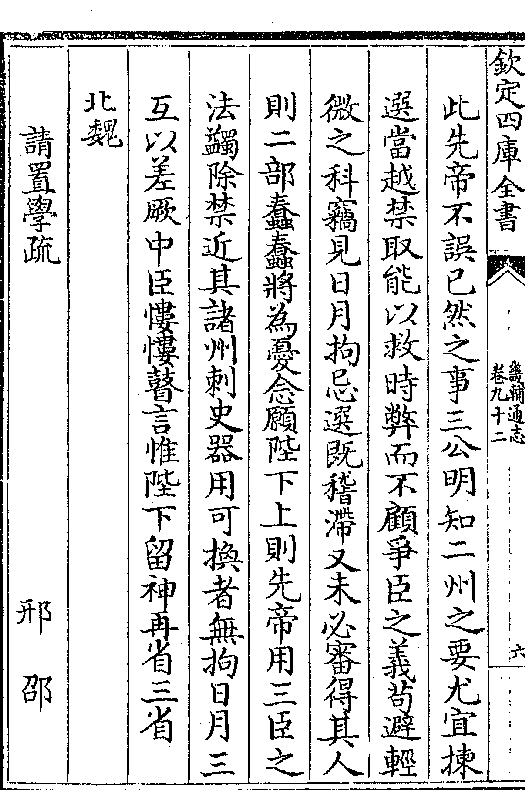 欽定四庫全書
畿輔通志
卷九十二
六
此先帝不誤已然之事三公明知二州之要尤宜揀
選當越禁取能以救時弊而不顧爭臣之義苟避輕
微之科竊見日月拘忌選既稽滯又未必審得其人
則二部蠢蠢將為憂念願陛下上則先帝用三臣之
法蠲除禁近其諸州刺史器用可換者無拘日月三
互以差厥中臣慺慺瞽言惟陛下留神再省三省
北魏
請置學疏 邢邵